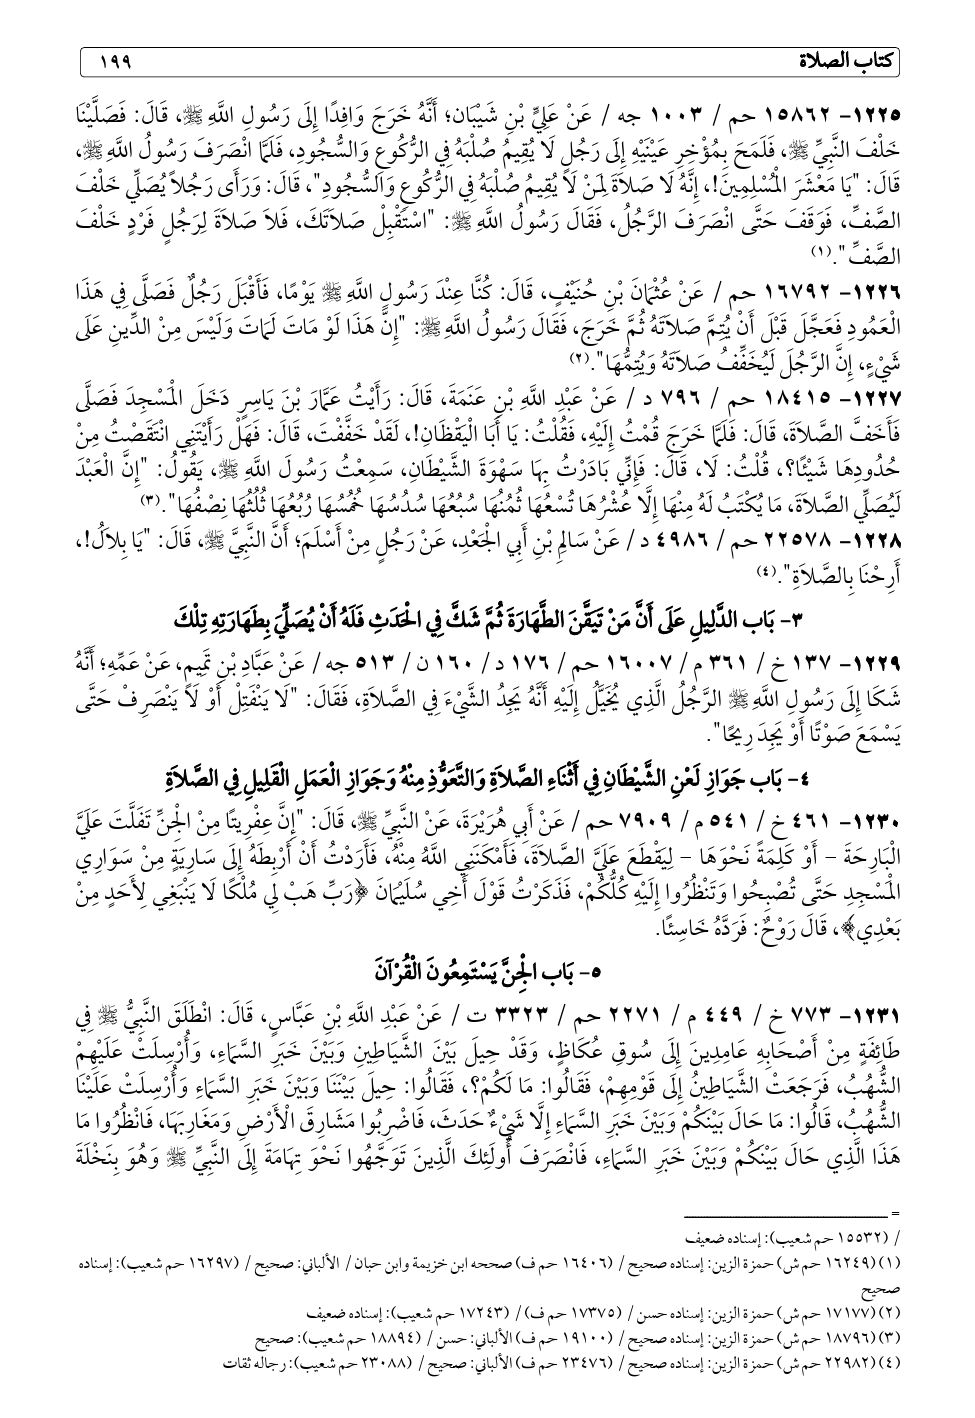 كتاب الصلاة ١٩٩
١٢٢٥- ١٥٨٦٢ حم / ١٠٠٣ جه / عَنْ عَلِيِّ بْنِ شَيْبَان؛ أَنَّهُ خَرَجَ وَافِدًا إِلَى رَسُولِ اللَّهِ ﷺ، قَالَ: فَصَلَّيْنَا
خَلْفَ النَّبِيِّ ﷺ، فَلَمَحَ بِمُؤْخِرِ عَيْنَيْهِ إِلَى رَجُلٍ لَا يُقِيمُ صُلْبَهُ فِي الرُّكُوعِ وَالسُّجُودِ، فَلَمَّا انْصَرَفَ رَسُولُ اللَّهِ ﷺ،
قَالَ: "يَا مَعْشَرَ الْمُسْلِمِينَ!، إِنَّهُ لَا صَلَاةَ لِمَنْ لَا يُقِيمُ صُلْبَهُ فِي الرُّكُوعِ وَالسُّجُودِ"، قَالَ: وَرَأَى رَجُلاً يُصَلِّي خَلْفَ
الصَّفِّ، فَوَقَفَ حَتَّى انْصَرَفَ الرَّجُلُ، فَقَالَ رَسُولُ اللَّهِ ﷺ: "اسْتَقْبِلْ صَلاَتَكَ، فَلاَ صَلاَةَ لِرَجُلٍ فَرْدٍ خَلْفَ
الصَّفِّ".(١)
١٢٢٦- ١٦٧٩٢ حم / عَنْ عُثْمَانَ بْنِ حُنَيْفٍ، قَالَ: كُنَّا عِنْدَ رَسُولِ اللَّهِ ﷺ يَوْمًا، فَأَقْبَلَ رَجُلٌ فَصَلَّى فِي هَذَا
الْعَمُودِ فَعَجَّلَ قَبْلَ أَنْ يُتِمَّ صَلَاتَهُ ثُمَّ خَرَجَ، فَقَالَ رَسُولُ اللَّهِ ﷺ: "إِنَّ هَذَا لَوْ مَاتَ لَمَاتَ وَلَيْسَ مِنْ الدِّينِ عَلَى
شَيْءٍ، إِنَّ الرَّجُلَ لَيُخَفِّفُ صَلَاتَهُ وَيُتِمُّهَا".(٢)
١٢٢٧- ١٨٤١٥ حم / ٧٩٦ د / عَنْ عَبْدِ اللَّهِ بْنِ عَنَمَةَ، قَالَ: رَأَيْتُ عَمَّارَ بْنَ يَاسِرٍ دَخَلَ الْمَسْجِدَ فَصَلَّى
فَأَخَفَّ الصَّلَاةَ، قَالَ: فَلَمَّا خَرَجَ قُمْتُ إِلَيْهِ، فَقُلْتُ: يَا أَبَا الْيَقْظَانِ!، لَقَدْ خَفَّفْتَ، قَالَ: فَهَلْ رَأَيْتَنِي انْتَقَصْتُ مِنْ
حُدُودِهَا شَيْئًا؟، قُلْتُ: لَا، قَالَ: فَإِنِّي بَادَرْتُ بِهَا سَهْوَةَ الشَّيْطَانِ، سَمِعْتُ رَسُولَ اللَّهِ ﷺ، يَقُولُ: "إِنَّ الْعَبْدَ
لَيُصَلِّي الصَّلَاةَ، مَا يُكْتَبُ لَهُ مِنْهَا إِلَّا عُشْرُهَا تُسْعُهَا ثُمُنُهَا سُبُعُهَا سُدُسُهَا خُمُسُهَا رُبُعُهَا ثُلُثُهَا نِصْفُهَا".(٣)
١٢٢٨- ٢٢٥٧٨ حم / ٤٩٨٦ د / عَنْ سَالِمِ بْنِ أَبِي الْجَعْدِ، عَنْ رَجُلٍ مِنْ أَسْلَمَ؛ أَنَّ النَّبِيَّ ﷺ، قَالَ: "يَا بِلاَلُ!،
أَرِحْنَا بِالصَّلَاةِ".(٤)
٣- بَاب الدَّلِيلِ عَلَى أَنَّ مَنْ تَيَقَّنَ الطَّهَارَةَ ثُمَّ شَكَّ فِي الْحَدَثِ فَلَهُ أَنْ يُصَلِّيَ بِطَهَارَتِهِ تِلْكَ
١٢٢٩- ١٣٧ خ / ٣٦١ م / ١٦٠٠٧ حم / ١٧٦ د / ١٦٠ ن / ٥١٣ جه / عَنْ عَبَّادِ بْنِ تَمِيمٍ، عَنْ عَمِّهِ؛ أَنَّهُ
شَكَا إِلَى رَسُولِ اللَّهِ ﷺ الرَّجُلُ الَّذِي يُخَيَّلُ إِلَيْهِ أَنَّهُ يَجِدُ الشَّيْءَ فِي الصَّلَاةِ، فَقَالَ: "لَا يَنْفَتِلْ أَوْ لَا يَنْصَرِفْ حَتَّى
يَسْمَعَ صَوْتًا أَوْ يَجِدَ رِيحًا".
٤- بَاب جَوَازِ لَعْنِ الشَّيْطَانِ فِي أَثْنَاءِ الصَّلَاةِ وَالتَّعَوُّذِ مِنْهُ وَجَوَازِ الْعَمَلِ الْقَلِيلِ فِي الصَّلَاةِ
١٢٣٠- ٤٦١ خ / ٥٤١ م / ٧٩٠٩ حم / عَنْ أَبِي هُرَيْرَةَ، عَنْ النَّبِيِّ ﷺ، قَالَ: "إِنَّ عِفْرِيتًا مِنْ الْجِنِّ تَفَلَّتَ عَلَيَّ
الْبَارِحَةَ – أَوْ كَلِمَةً نَحْوَهَا – لِيَقْطَعَ عَلَيَّ الصَّلَاةَ، فَأَمْكَنَنِي اللَّهُ مِنْهُ، فَأَرَدْتُ أَنْ أَرْبِطَهُ إِلَى سَارِيَةٍ مِنْ سَوَارِي
الْمَسْجِدِ حَتَّى تُصْبِحُوا وَتَنْظُرُوا إِلَيْهِ كُلُّكُمْ، فَذَكَرْتُ قَوْلَ أَخِي سُلَيْمَانَ ﴿رَبِّ هَبْ لِي مُلْكًا لَا يَنْبَغِي لِأَحَدٍ مِنْ
بَعْدِي﴾، قَالَ رَوْحٌ: فَرَدَّهُ خَاسِئًا.
٥- بَاب الْجِنَّ يَسْتَمِعُونَ الْقُرْآنَ
١٢٣١- ٧٧٣ خ / ٤٤٩ م / ٢٢٧١ حم / ٣٣٢٣ ت / عَنْ عَبْدِ اللَّهِ بْنِ عَبَّاسٍ، قَالَ: انْطَلَقَ النَّبِيُّ ﷺ فِي
طَائِفَةٍ مِنْ أَصْحَابِهِ عَامِدِينَ إِلَى سُوقِ عُكَاظٍ، وَقَدْ حِيلَ بَيْنَ الشَّيَاطِينِ وَبَيْنَ خَبَرِ السَّمَاءِ، وَأُرْسِلَتْ عَلَيْهِمْ
الشُّهُبُ، فَرَجَعَتْ الشَّيَاطِينُ إِلَى قَوْمِهِمْ، فَقَالُوا: مَا لَكُمْ؟، فَقَالُوا: حِيلَ بَيْنَنَا وَبَيْنَ خَبَرِ السَّمَاءِ وَأُرْسِلَتْ عَلَيْنَا
الشُّهُبُ، قَالُوا: مَا حَالَ بَيْنَكُمْ وَبَيْنَ خَبَرِ السَّمَاءِ إِلَّا شَيْءٌ حَدَثَ، فَاضْرِبُوا مَشَارِقَ الْأَرْضِ وَمَغَارِبَهَا، فَانْظُرُوا مَا
هَذَا الَّذِي حَالَ بَيْنَكُمْ وَبَيْنَ خَبَرِ السَّمَاءِ، فَانْصَرَفَ أُولَئِكَ الَّذِينَ تَوَجَّهُوا نَحْوَ تِهَامَةَ إِلَى النَّبِيِّ ﷺ وَهُوَ بِنَخْلَةَ
=
/ (١٥٥٣٢ حم شعيب): إسناده ضعيف
(١) (١٦٢٤٩ حم ش) حمزة الزين: إسناده صحيح / (١٦٤٠٦ حم ف) صححه ابن خزيمة وابن حبان / الألباني: صحيح / (١٦٢٩٧ حم شعيب): إسناده
صحيح
(٢) (١٧١٧٧ حم ش) حمزة الزين: إسناده حسن / (١٧٣٧٥ حم ف) / (١٧٢٤٣ حم شعيب): إسناده ضعيف
(٣) (١٨٧٩٦ حم ش) حمزة الزين: إسناده صحيح / (١٩١٠٠ حم ف) الألباني: حسن / (١٨٨٩٤ حم شعيب): صحيح
(٤) (٢٢٩٨٢ حم ش) حمزة الزين: إسناده صحيح / (٢٣٤٧٦ حم ف) الألباني: صحيح / (٢٣٠٨٨ حم شعيب): رجاله ثقات